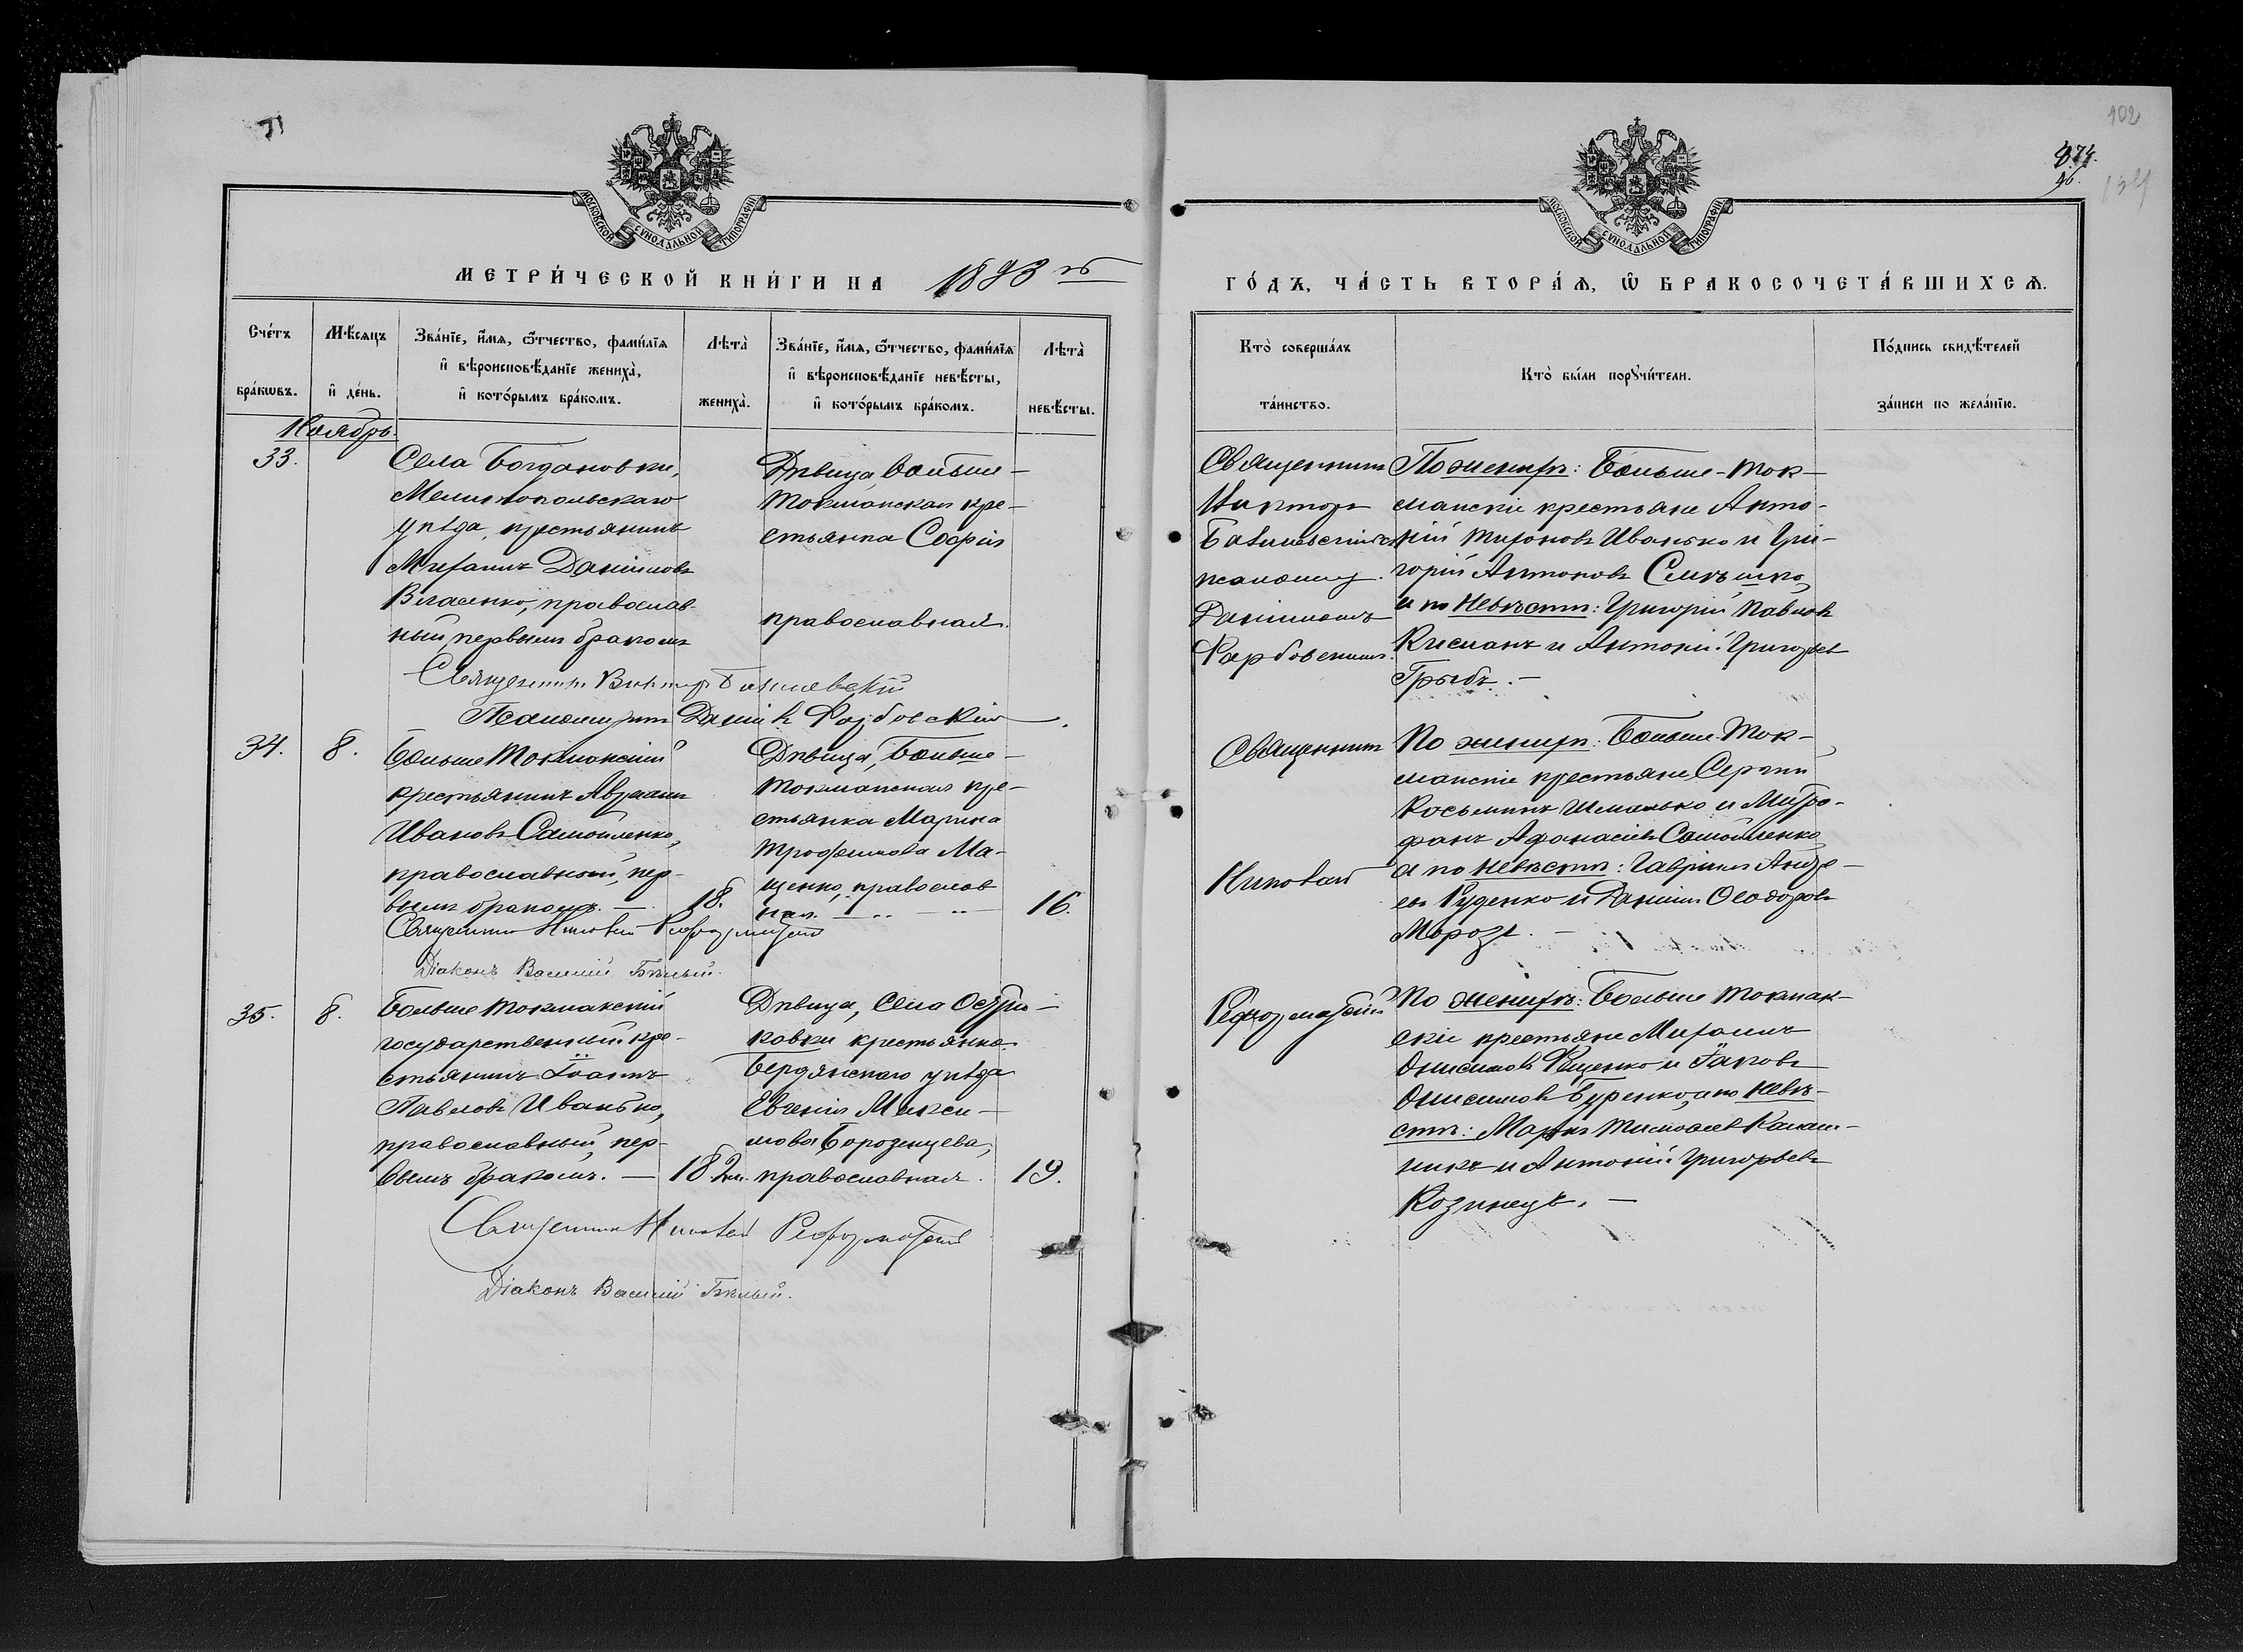 71
МОСКОВСКОЙ СѴНОДАЛЬНОЙ ТИПОГРАФІИ
МЕТРИ́ЧЕСКОЙ КНИ́ГИ НА 1893 об
Сче́тъ бра́кѡвъ.
Мѣ́сяцъ и҆ де́нь.
Зва́нїе, и҆́мѧ, ѻ҆́тчество, фами́лїѧ
и҆ вѣроисповѣ́данїе жениха̀,
и҆ кото́рымъ бра́комъ.
Лѣта̀ жениха̀.
Зва́нїе, и҆́мѧ, ѻ҆́тчество, фами́лїѧ
и҆ вѣроисповѣ́данїе невѣ́сты,
и҆ кото́рымъ бра́комъ.
Лѣта̀ невѣ́сты.
Ноябрь.
33.
Села Богдановки,
Мелитопольскаго
уѣзда, крестьянинъ
Михаилъ Даніиловъ
Власенко, православ-
ный, первымъ бракомъ
Дѣвица, Больше-
Токмакская кре-
стьянка Софія
православная.
Священникъ Викторъ Бакшевскій
Псаломщикъ Даніилъ
34.
8.
Больше Токмакскій
крестьянинъ Авраамъ
Ивановъ Самойленко,
православный, пер-
вымъ бракомъ. —
18.
Дѣвица, Больше-
Токмакская кре-
стьянка Марина
Трофимова Ма-
щенко, православ
ная. —
16.
Священникъ Николай Реформатскій
Діаконъ Василій Бѣлый.
35.
8.
Больше Токмакскій
государственный кре-
стьянинъ Іоаннъ
Павловъ Иванько,
православный, пер-
вымъ бракомъ. —
18.
Дѣвица, Села Остри-
ковки крестьянка
Бердянскаго уѣзда
Евгенія Макси-
мова Бородицева,
православная.
19.
Священникъ Николай Реформатскій
Діаконъ Василій Бѣлый.
102
374.
МОСКОВСКОЙ СѴНОДАЛЬНОЙ ТИПОГРАФІИ
ГО́ДЪ, ЧА́СТЬ ВТОРА́Ѧ, Ѡ҆ БРАКОСОЧЕТА́ВШИХСѦ.
Кто̀ соверша́лъ та́инство.
Кто̀ бы́ли порꙋчи́тели.
По́дпись свидѣ́телей за́писи по жела́нїю.
Священникъ
Викторъ
Бакшевскій съ
псаломщ.
Даніиломъ
По женихѣ: Больше-Ток-
макскіе крестьяне Анто-
ній Тихоновъ Иванько и Гри-
горій Антоновъ
и по невѣстѣ: Григорій Павловъ
Кисланъ и Антоній Григорьев
Грыбъ. —
Священникъ
Николай
Реформатскій
По женихѣ: Больше-Ток-
макскіе крестьяне Сергій
Косьминъ Шманько и Митро-
фанъ Афанасіевъ Самойленко
а по невѣстѣ: Гавріилъ Андре-
евъ Руденко и Даніилъ Ѳеодоровъ
Морозъ. —
По женихѣ: Больше Токмак-
скіе крестьяне Михаилъ
Онисимовъ Ященко и Іаковъ
Онисимовъ Буренко, а по невѣ-
стѣ: Маркъ Тимоѳеевъ Калаш-
никъ и Антоній Григорьевъ
Козинецъ. —